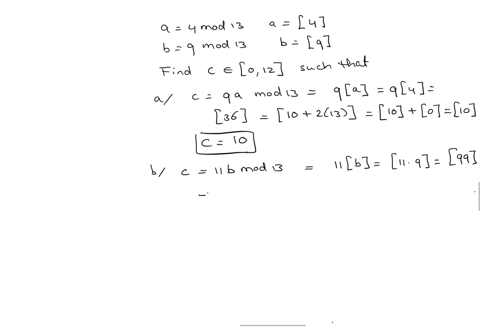 a = 4 mod 13 a = [4]
b = 9 mod 13 b = [9]
Find c ∈ [0,12] such that
a/ c = 9a mod 13 = 9[a] = 9[4] =
[36] = [10 + 2(13)] = [10] + [0] = [10]
c = 10
b/ c = 11b mod 13 = 11[b] = [11·9] = [99]
=